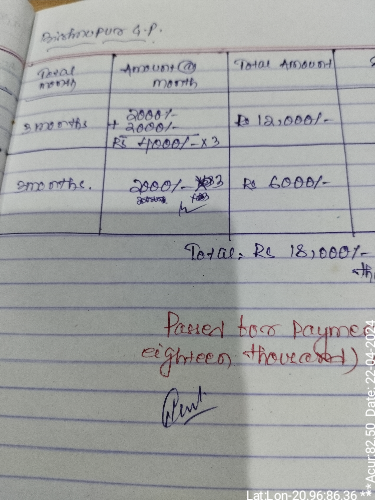 G.P.
Total month
Amount @ month
Total Amount
3 months
2000/-
+ 2000/-
Rs 4000/- x3
Rs 12,000/-
3 months.
2000/-
Rs 6000/-
Total, Rs 18,000/-
Passed for payme
eighteen thousand)
Lat Lon-20.96:86.36 ***Acur:82.50 Date: 22-04-2024